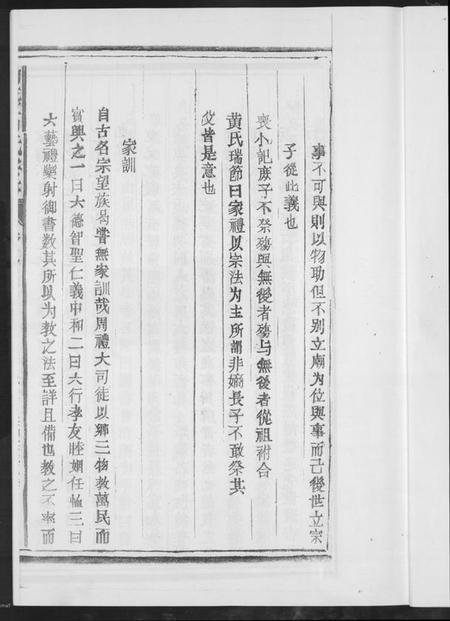 事不可與則以物助但不别立廟为位與事而已後世立宗
子從此義也
喪小記庶子不祭殤與無後者殤与無後者從祖祔合
黄氏瑞節曰家禮以宗法为主所謂非嫡長子不敢祭其
父皆是意也
家訓
自古名宗望族曷嘗無家訓哉周禮大司徒以鄉三物教萬民而
賓興之一曰六德智聖仁義中和二曰六行孝友睦婣任恤三曰
六藝禮樂射御書数其所以为教之法至詳且備也教之不率而